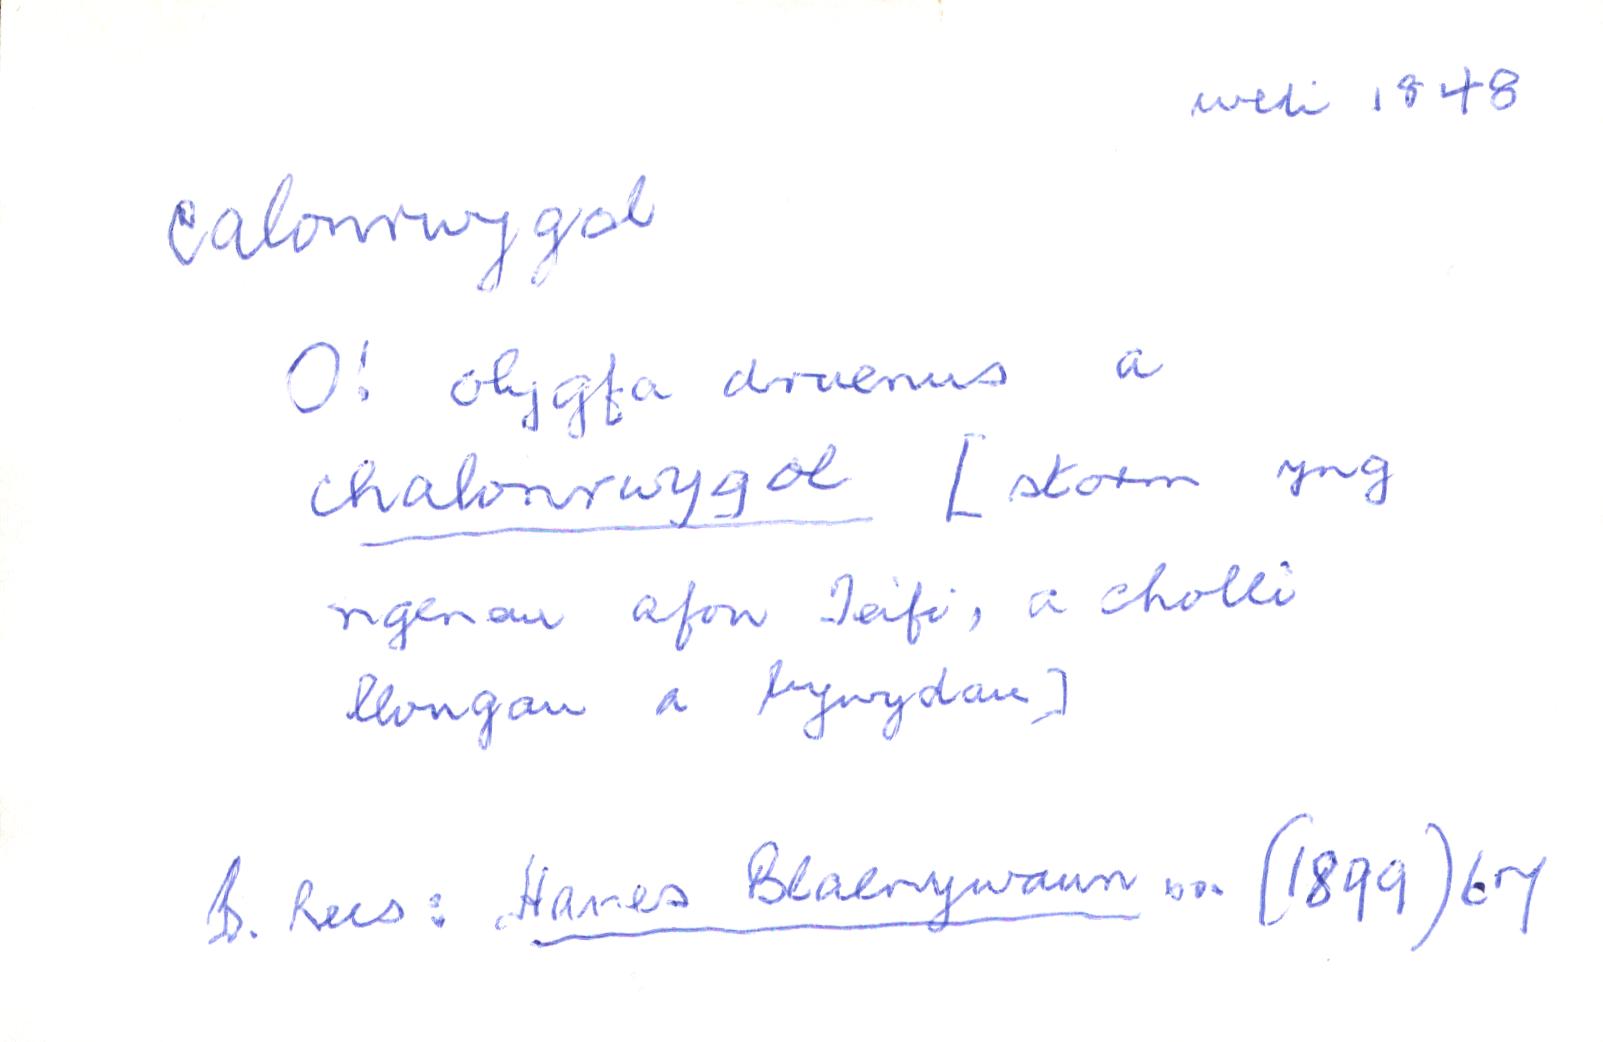 wedi 1848
calonrwygol
O! olygfa druenus a
chalonrwygol [storm yng
ngenau afon Teifi, a cholli
llongau a bywydau]
B. Rees: Hanes Blaenywaun ... (1899)